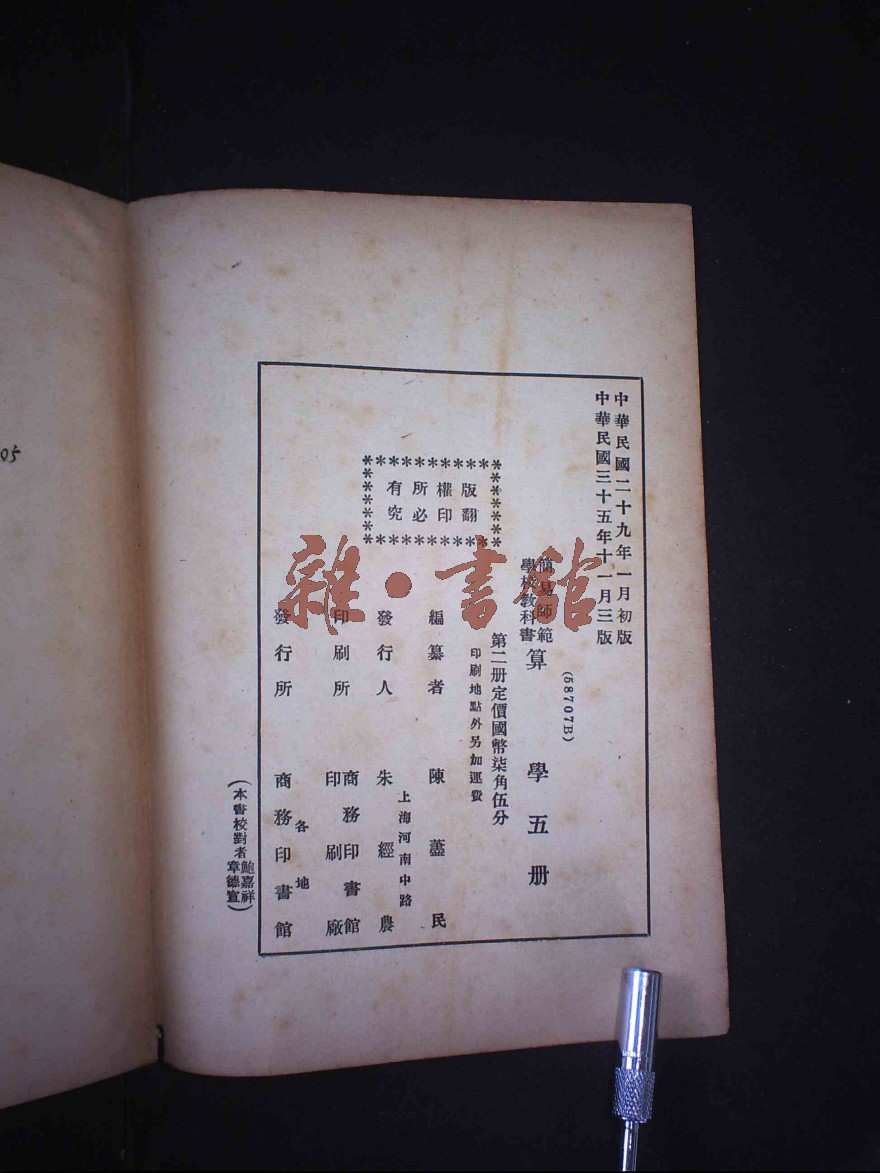 中華民國二十九年一月初版
中華民國三十五年十一月三版
(58707B)
簡易師範
學校教科書
算學五册
第二册定價國幣柒角伍分
印刷地點外另加運費
編纂者 陳藎民
上海河南中路
發行人 朱經農
印刷所 商務印書館
印刷廠
各地
發行所 商務印書館
版權所有
翻印必究
(本書校對者鮑嘉祥
章德宣)
雜·書館
05